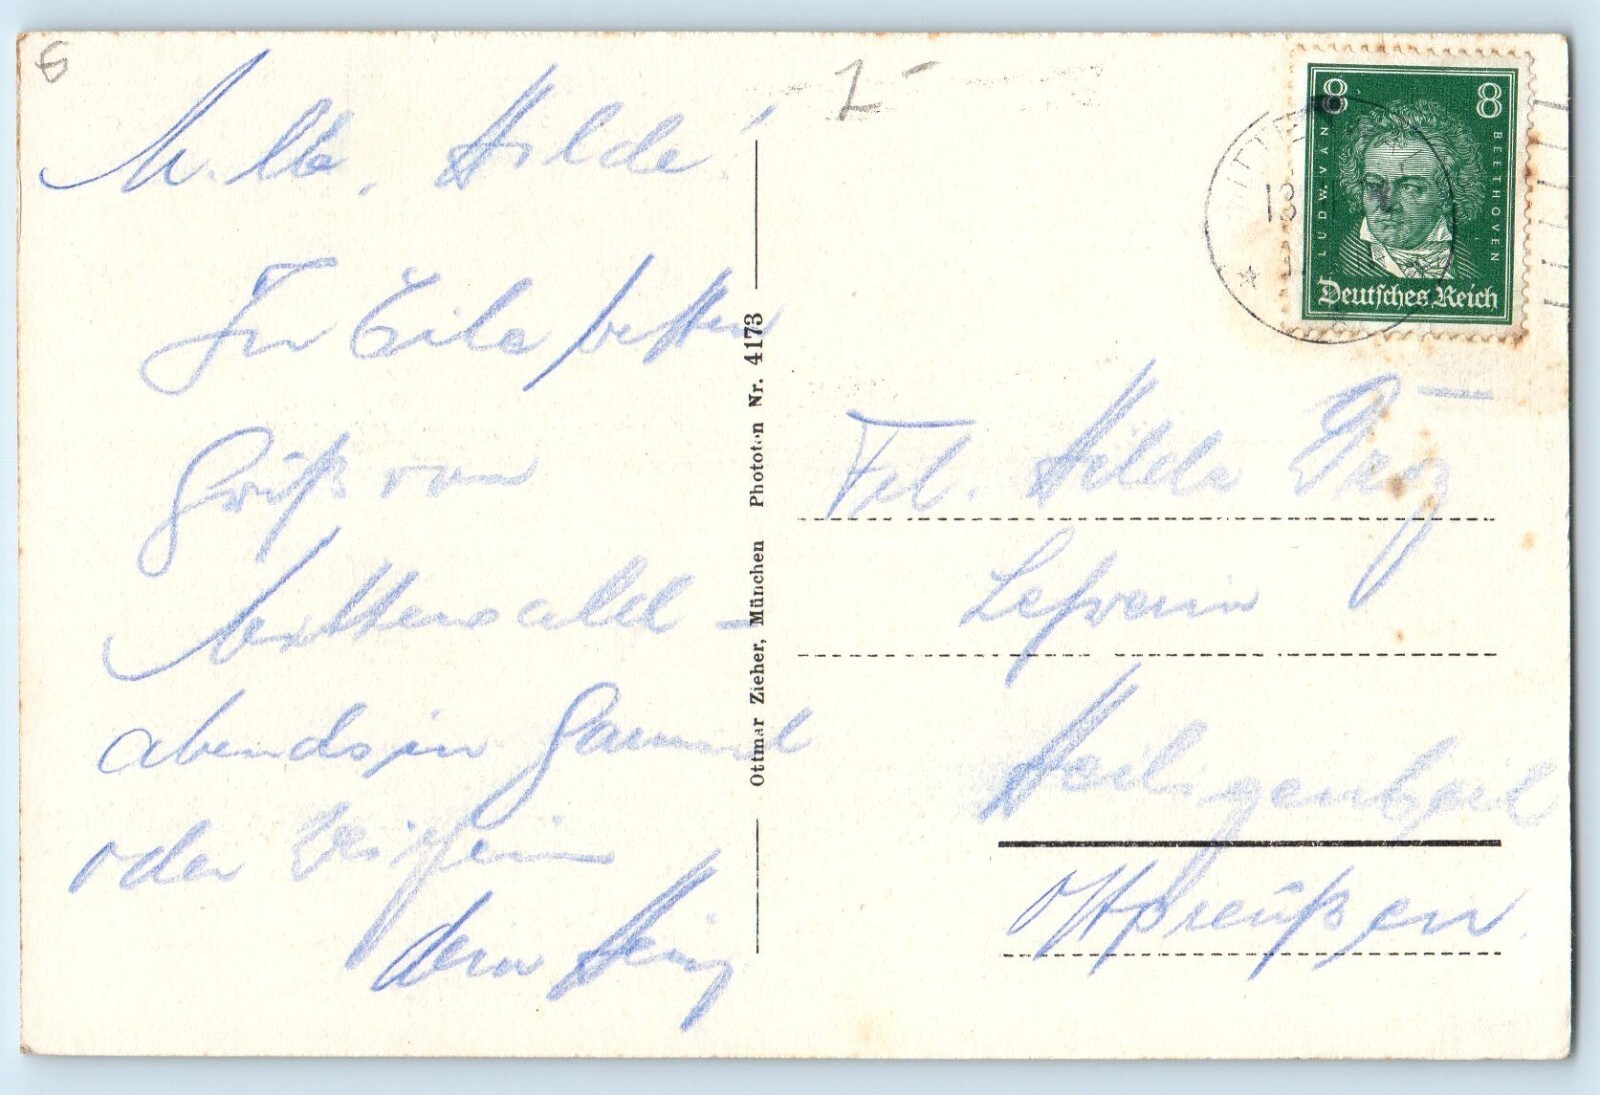 6
M. lb. Hilde!
In Eile besten
Gruß von
Mittenwald –
abends in
oder
dein Heinz
Ottmar Zieher, München Phototon Nr. 4173
1-
8 8
LUDW. VAN BEETHOVEN
Deutsches Reich
MITTE
18
Frl. Hilde
Lehrerin
Heiligenbeil
Ostpreußen